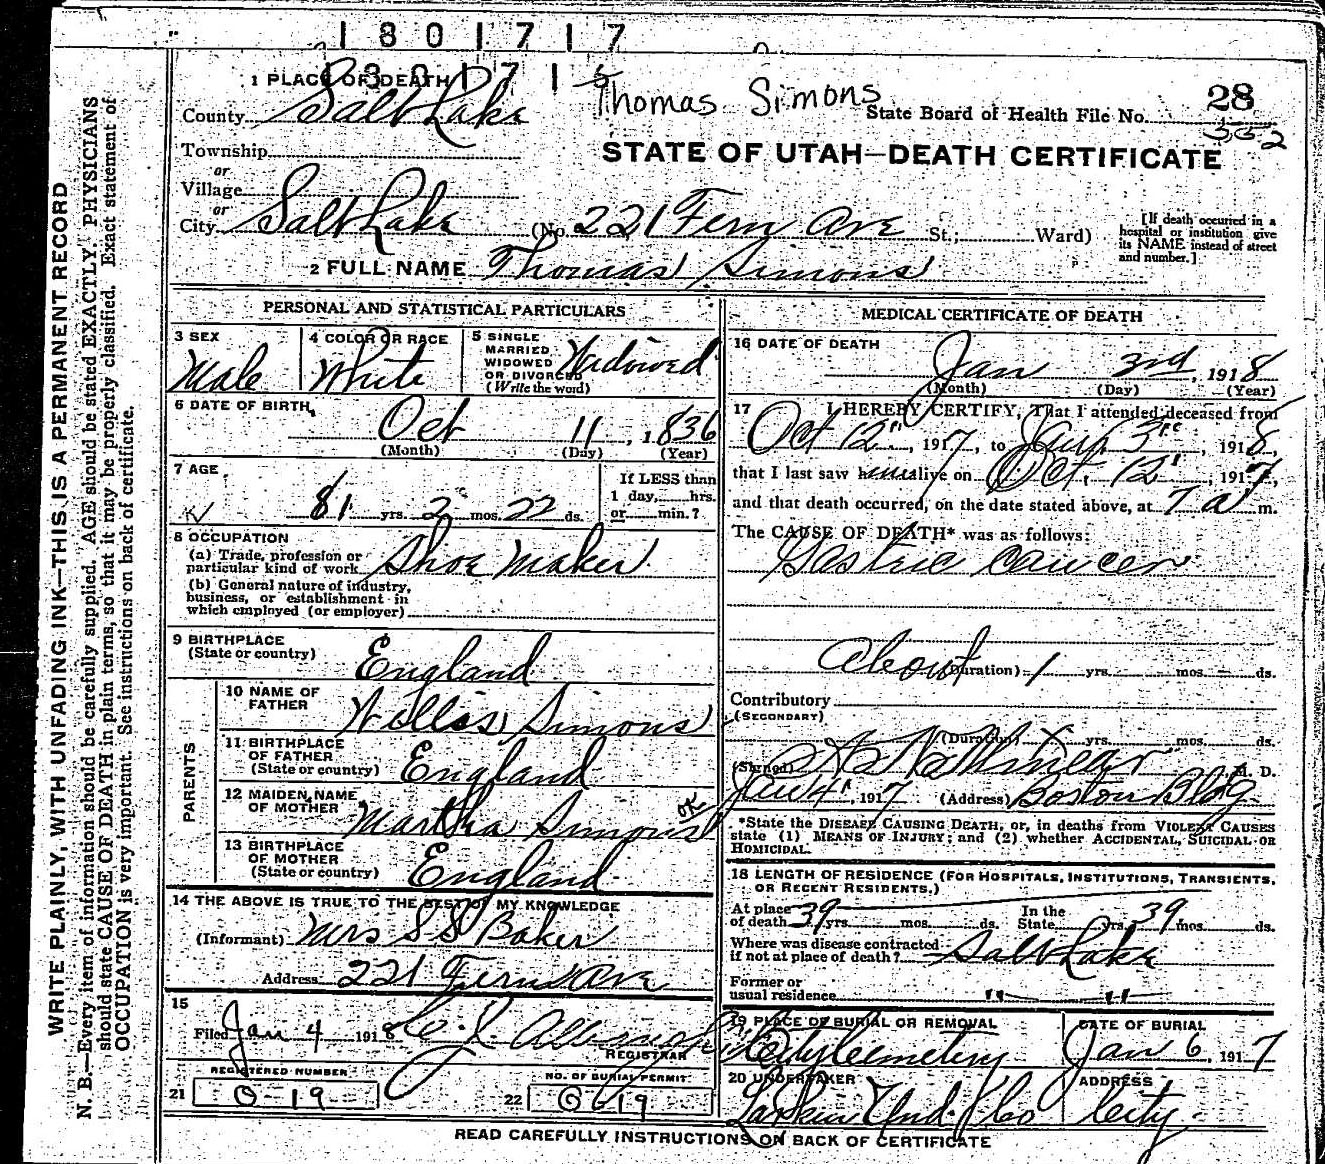 1301717
130171
Thomas Simons
1 PLACE OF DEATH
County Salt Lake
State Board of Health File No. 28
352
Township
STATE OF UTAH—DEATH CERTIFICATE
or
Village
or
City Salt Lake (No. 221 Fern Ave St.; Ward)
[If death occurred in a hospital or institution give its NAME instead of street and number.]
2 FULL NAME Thomas Simons
PERSONAL AND STATISTICAL PARTICULARS
3 SEX
Male
4 COLOR OR RACE
White
5 SINGLE
MARRIED
WIDOWED
OR DIVORCED
(Write the word)
Widowed
6 DATE OF BIRTH
Oct 11, 1836
(Month) (Day) (Year)
7 AGE
81 yrs. 2 mos. 22 ds.
If LESS than
1 day, hrs.
or min.?
8 OCCUPATION
(a) Trade, profession or
particular kind of work Shoe Maker
(b) General nature of industry,
business, or establishment in
which employed (or employer)
9 BIRTHPLACE
(State or country)
England
PARENTS
10 NAME OF
FATHER
Simons
11 BIRTHPLACE
OF FATHER
(State or country)
England
12 MAIDEN NAME
OF MOTHER
Martha Simons OK
13 BIRTHPLACE
OF MOTHER
(State or country)
England
14 THE ABOVE IS TRUE TO THE BEST OF MY KNOWLEDGE
(Informant) Mrs S S Baker
Address 221 Fern Ave
15
Filed Jan 4 1918
REGISTRAR
REGISTERED NUMBER
21 O-19
NO. OF BURIAL PERMIT
22 G619
MEDICAL CERTIFICATE OF DEATH
16 DATE OF DEATH
Jan 3rd, 1918
(Month) (Day) (Year)
17 I HEREBY CERTIFY, That I attended deceased from
Oct 12", 1917, to Jan 3rd, 1918,
that I last saw him alive on Oct. 12", 1917,
and that death occurred, on the date stated above, at 7 a m.
The CAUSE OF DEATH* was as follows:
Gastric Cancer
About (Duration) 1 yrs. mos. ds.
Contributory
(SECONDARY)
(Duration) yrs. mos. ds.
(Signed) M. D.
Jan 4", 1917 (Address) Boston Bldg
*State the DISEASE CAUSING DEATH, or, in deaths from VIOLENT CAUSES
state (1) MEANS OF INJURY; and (2) whether ACCIDENTAL, SUICIDAL OR
HOMICIDAL.
18 LENGTH OF RESIDENCE (FOR HOSPITALS, INSTITUTIONS, TRANSIENTS,
OR RECENT RESIDENTS.)
At place
of death 39 yrs. mos. ds.
In the
State yrs. 39 mos. ds.
Where was disease contracted
if not at place of death? Salt Lake
Former or
usual residence " "
19 PLACE OF BURIAL OR REMOVAL
City Cemetery
DATE OF BURIAL
Jan 6, 1917
20 UNDERTAKER
Larkin Und. Co
ADDRESS
City
READ CAREFULLY INSTRUCTIONS ON BACK OF CERTIFICATE
WRITE PLAINLY, WITH UNFADING INK—THIS IS A PERMANENT RECORD
N. B.—Every item of information should be carefully supplied. AGE should be stated EXACTLY. PHYSICIANS
should state CAUSE OF DEATH in plain terms, so that it may be properly classified. Exact statement of
OCCUPATION is very important. See instructions on back of certificate.